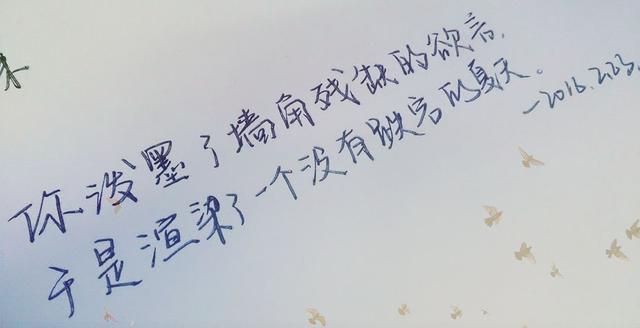 你泼墨了墙角残缺的欲言，
于是渲染了一个没有跌宕的夏天。
—2016.2.23.